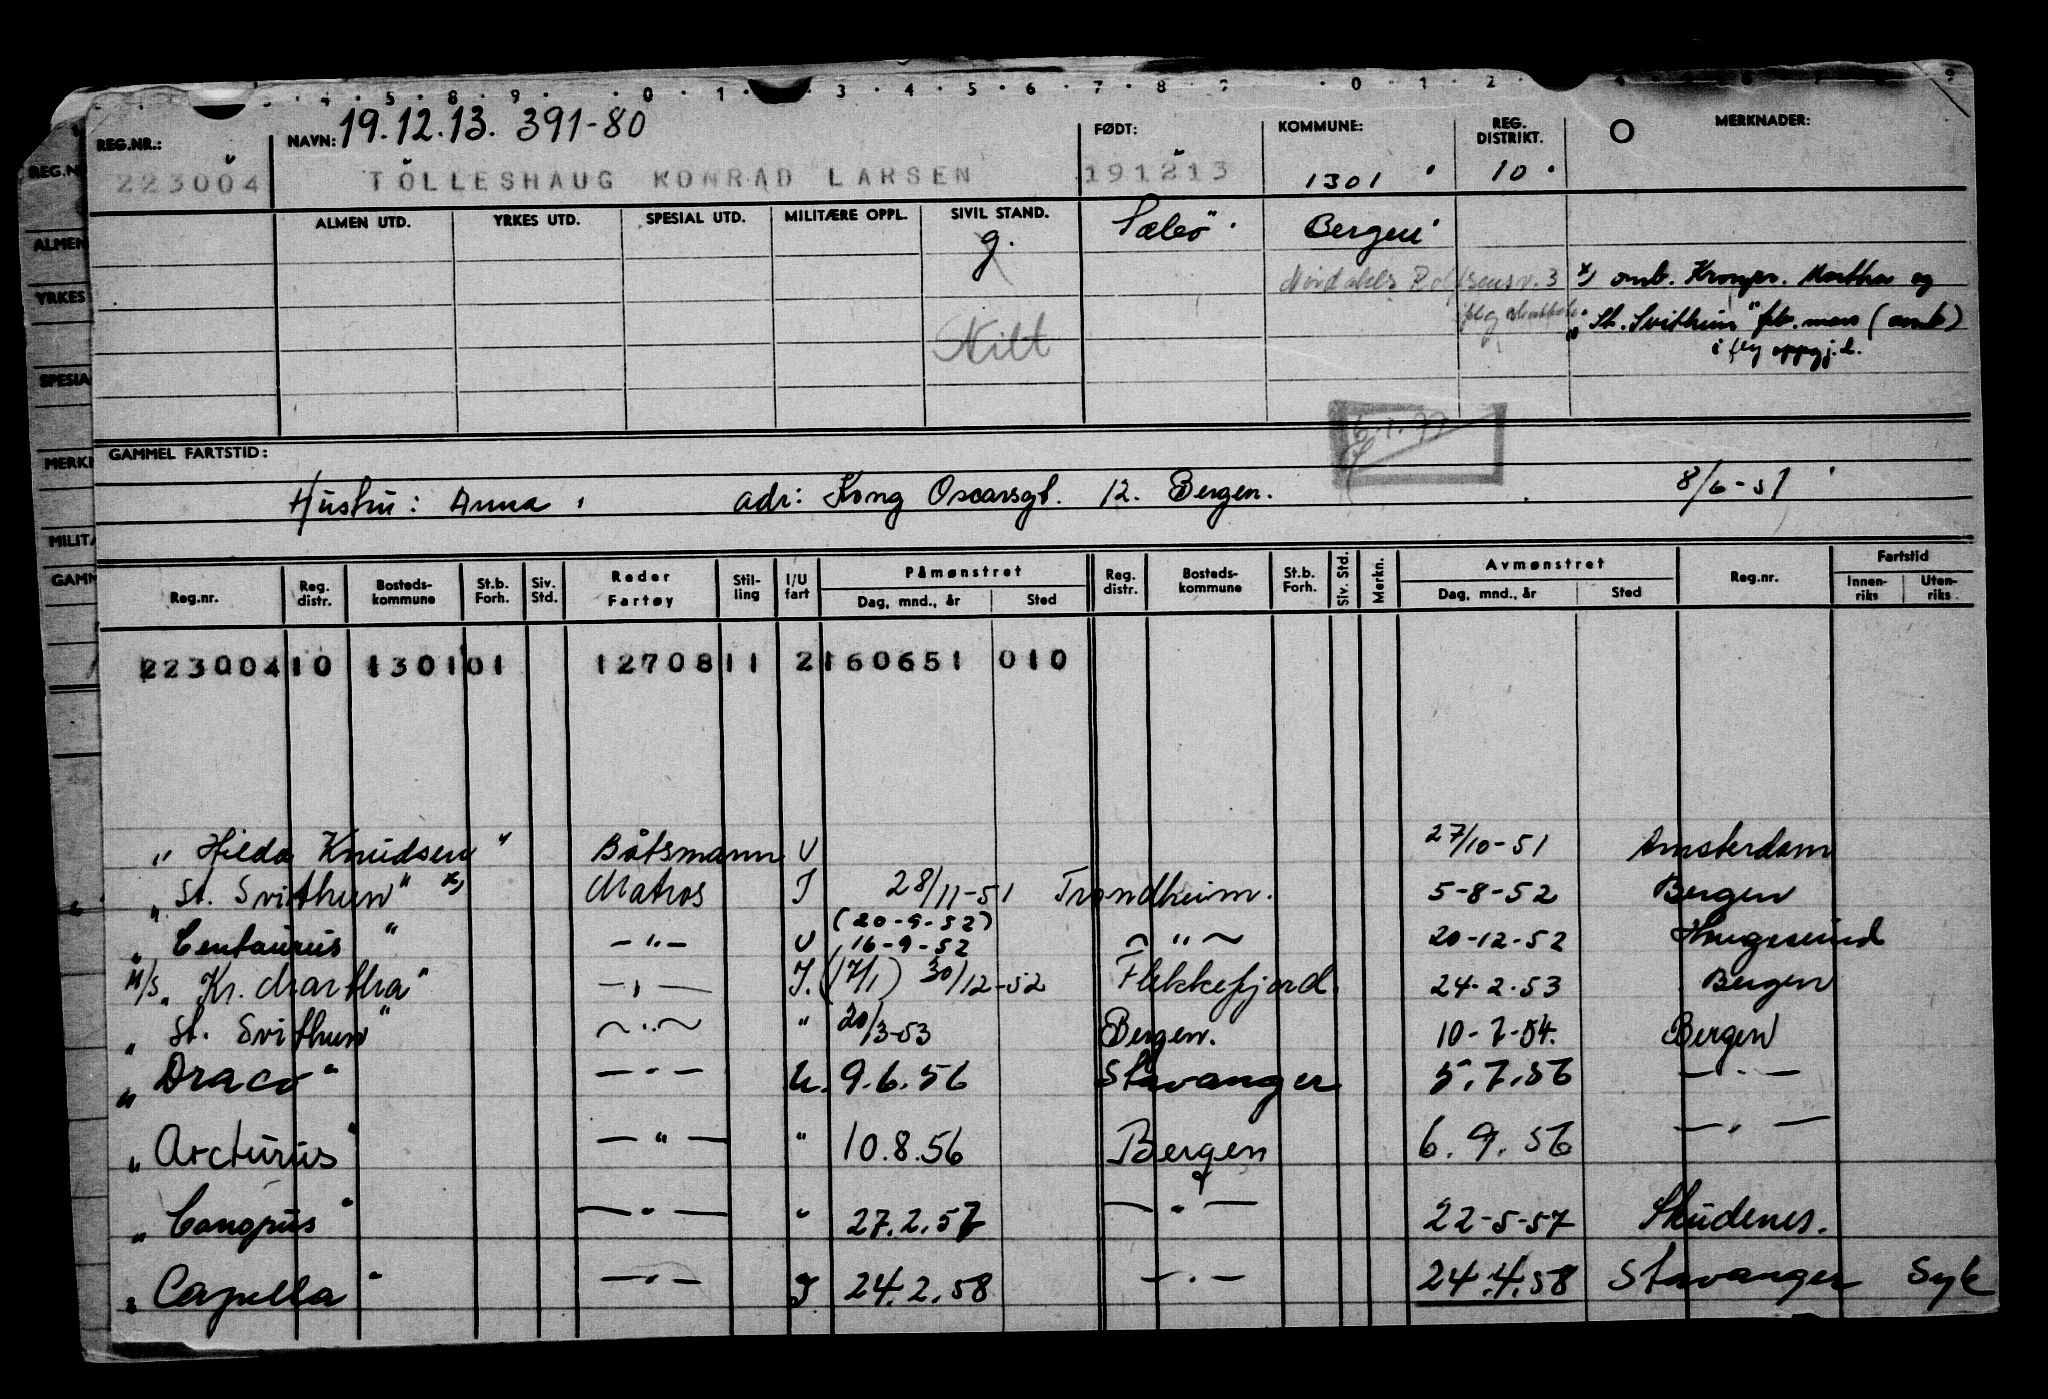 4 . 5 . 8 . 9 . 0 . 1 . 3 . 4 . 5 . 6 . 7 . 8 . 0 . 1 . 2
REG.NR.: NAVN: 19.12.13. 391-80 FØDT: KOMMUNE: REG. DISTRIKT. MERKNADER:
223004 TÖLLESHAUG KONRAD LARSEN 191213 1301 10
ALMEN UTD. YRKES UTD. SPESIAL UTD. MILITÆRE OPPL. SIVIL STAND. Sæbö Bergen
g.
3 x) omb. Kronpr. Martha og
"St. Svithun" feb. mars (omb)
i flg oppgj.d.
GAMMEL FARTSTID:
Hustru: Anna, adr: Kong Oscarsgt. 12. Bergen. 8/6-51
Reg.nr. Reg. distr. Bosteds-kommune St.b. Forh. Siv. Std. Reder Fartøy Stil-ling I/U fart Påmønstret Dag, mnd., år Sted Reg. distr. Bosteds-kommune St.b. Forh. Siv. Std. Merkn. Avmønstret Dag, mnd., år Sted Reg.nr. Fartstid Innen-riks Uten-riks
223004 10 1301 01 12708 11 2 160651 010
"Hilda Knudsen" Båtsmann U 27/10-51 Amsterdam
"St. Svithun" x) Matros I 28/11-51 Trondheim. 5-8-52 Bergen
(20-9-52)
"Centaurus" —"— U 16-9-52 —"— 20-12-52 Haugesund
M/S "Kr. Martha" —"— I. (17/1) 30/12-52 Flekkefjord. 24-2-53 Bergen
"St. Svithun" —"— " 20/3-53 Bergen. 10-7-54. Bergen
"Draco" —"— U. 9.6.56 Stavanger 5.7.56 —"—
"Arcturus" —"— " 10.8.56 Bergen 6.9.56 —"—
"Canopus" —"— " 27.2.57 —"— 22-5-57 Skudenes.
"Capella" —"— I 24.2.58 —"— 24.4.58 Stavanger Syk